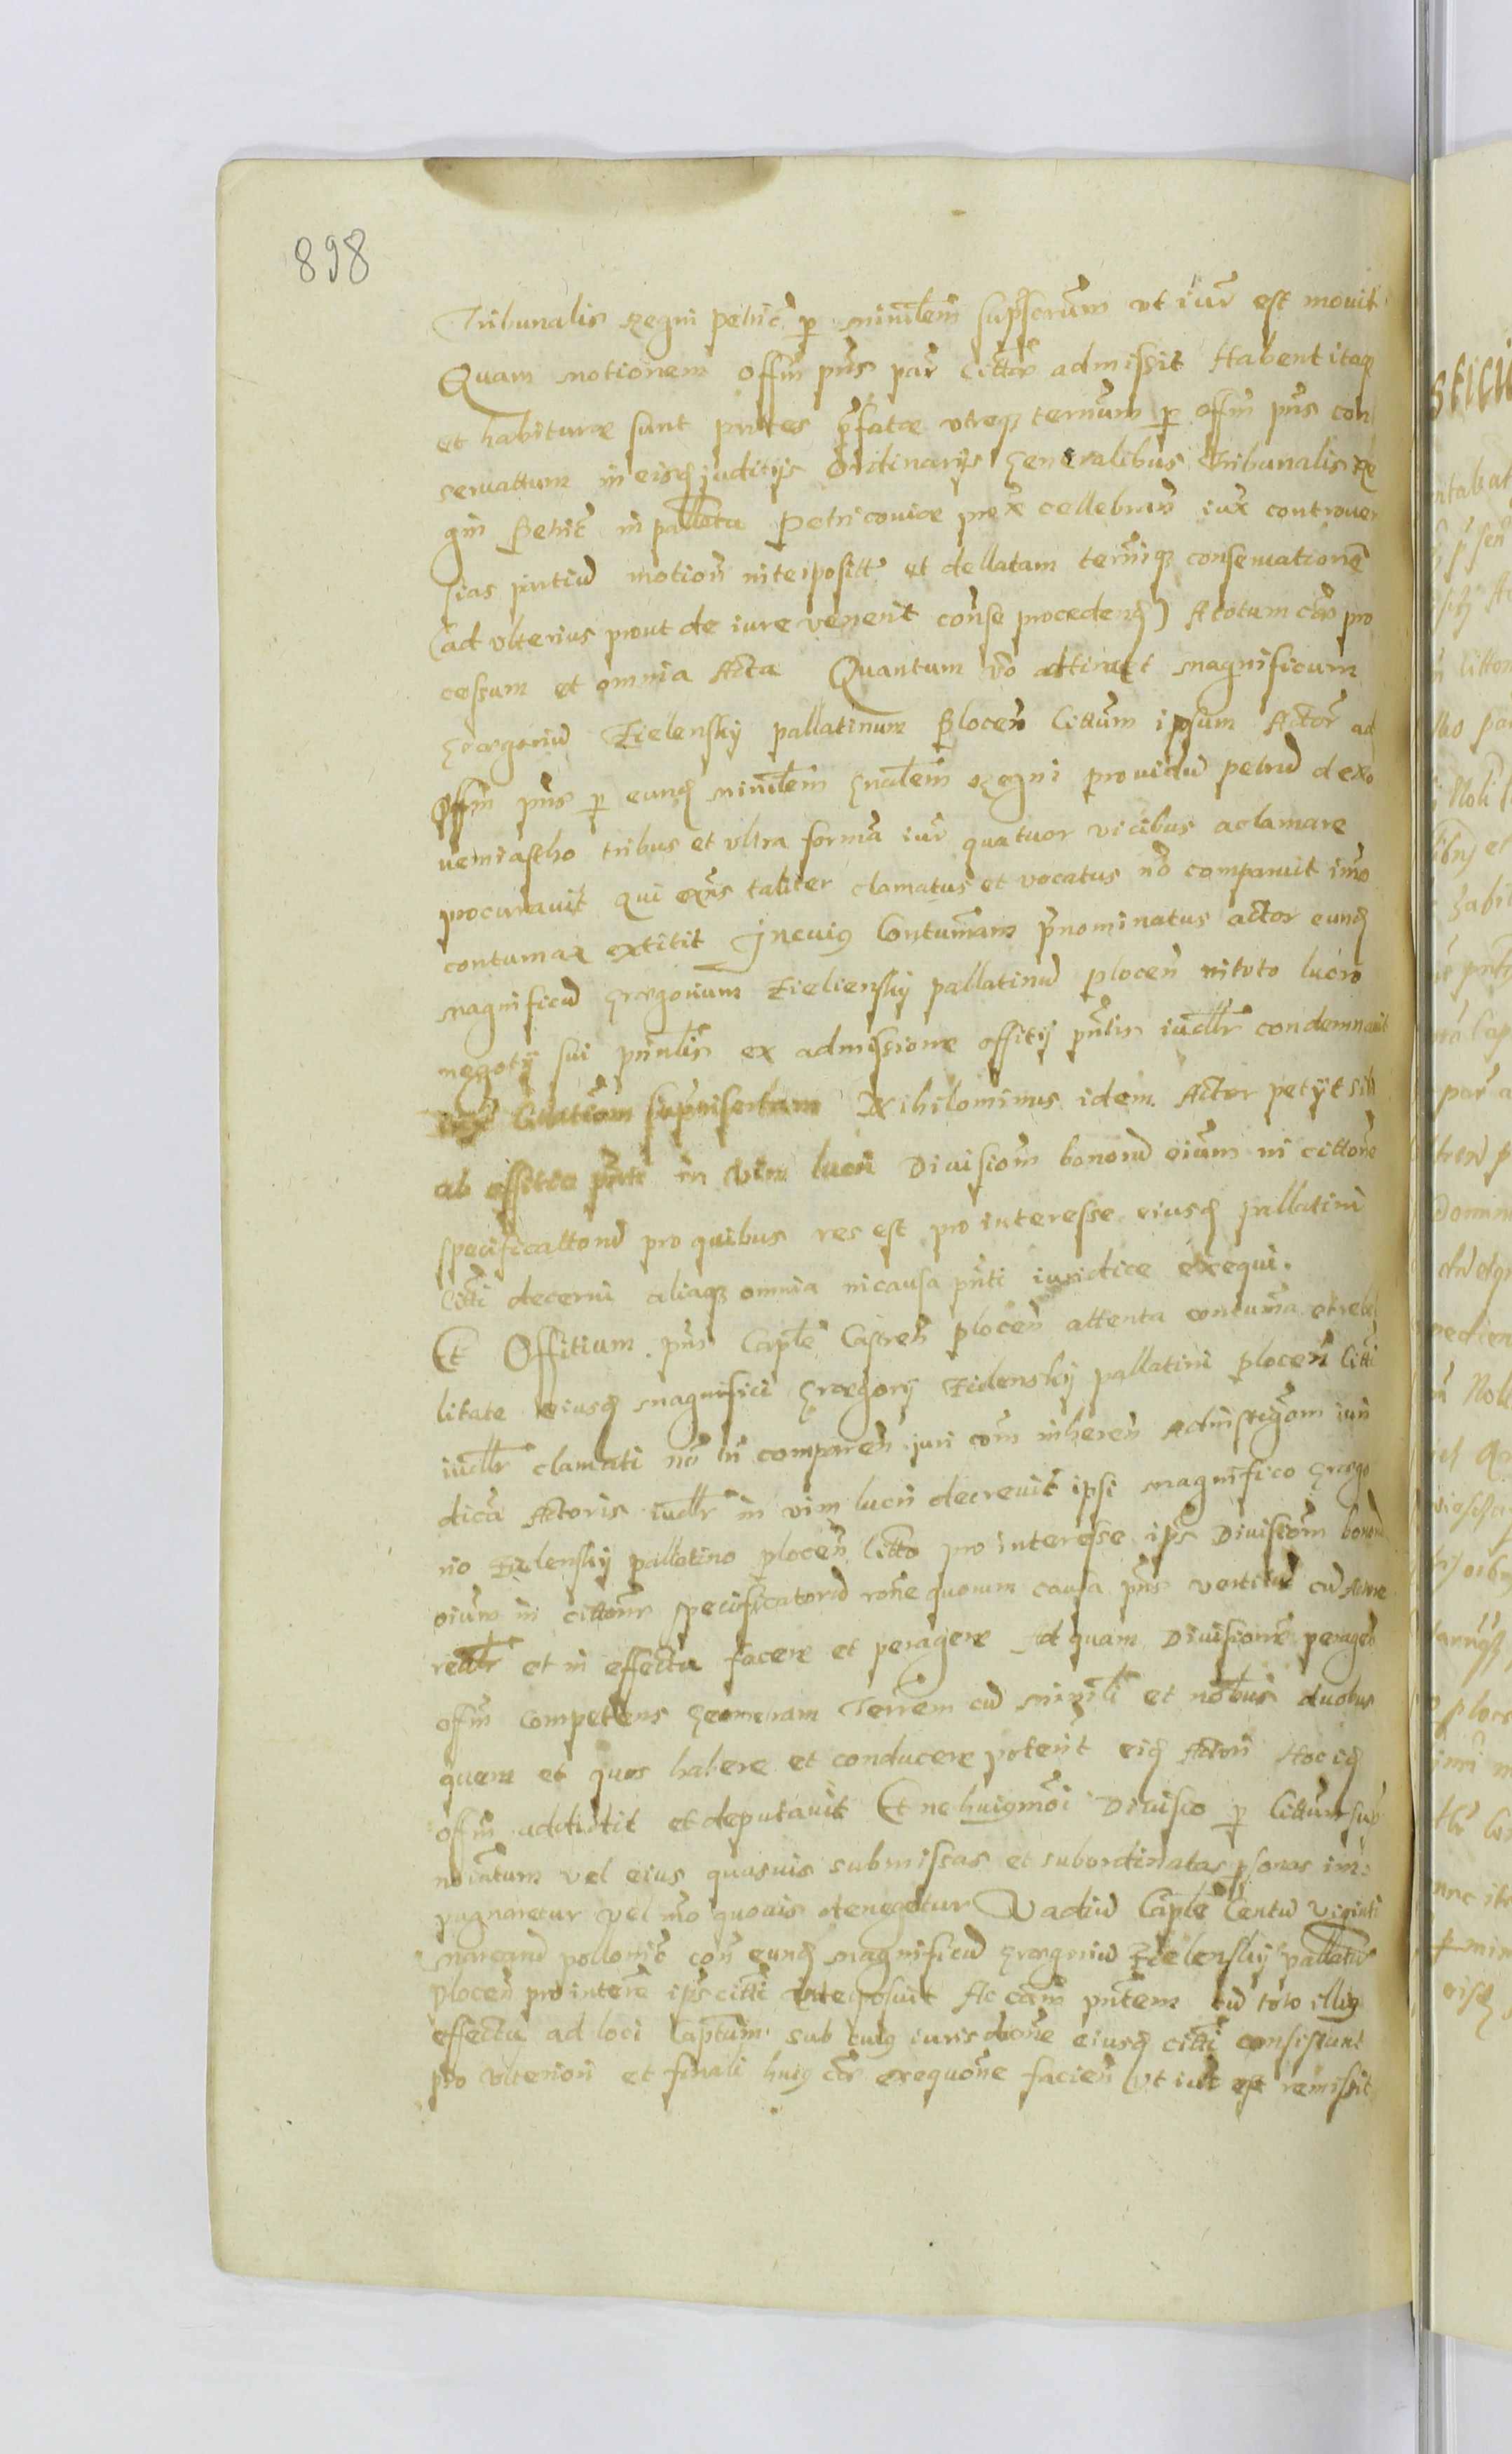 898
Tribunalis Regni petric̃ p minr̃lem supscrum vt iur̃ est mouit
Quam motionem offm̃ pñs par̃ citt̃ar̃ admissit Habent itaq
et habiturae sunt partes p̃fatae vtreq ternum p offm̃ pñs con
seruattum in eisd juditijs Ordinarijs Generalibus Tribunalis Re
gni Petric̃ in pallatu Petricouiae prox̃ cellebran̄ iux̃ controuer
sias partiū motioñ interpositt̃ et dellatam termiq conseruationẽ
(ad vlterius prout de iure venerit conse procedend) Ac totum cãe pro
cessum et omnia Acta Quantum vo attinet magnificum
Graegoriū Zielensky pallatinum Plocen̄ Cittum ipsum Actor̃ ad
Offm̃ pñs p eund minr̃lem gnãlem Regni prouidū petrū de xo
uemiastho tribus et vltra formã iur̃ quatuor vicibus aclamare
procurauit qui exñs taliter clamatus et vocatus nõ comparuit imo
contumax extitit In cuiq Contumãm p̃nominatus actor eund
magnificū Graegorium Zielensky pallatinū plocen̄ in toto lucro
negotij sui prinlis̃ ex admissione offitij pñtis iudlr̃ condemnauit
iuxta Citationem suprinsertam Nihilominus idem Actor petijt sibi
ab offitio pñti in vim lucri Diuisiom̃ bonorū eium̃ in cittone
specificattorū pro quibus res est pro interesse eiusd pallatini
Citti decerni aliaq omnia in causa pñti iuridice exequi.
Et Offitium pñs Caple Castren̄ plocen̄ attenta contum̃a et rebel
litate eiusd magnifici Graegorij Zielensky pallatini plocen̄ Citti
iudlr̃ clamati nõ tñ comparen̄ juri com̃ inheren̄ Adinstigom̃ iuri
dicã Actoris iudlr̃ in vim lucri decreuit ipsi magnifico Graego
rio Zielensky pallatino plocen̄ Citto pro interesse ips̃ Diuisiom̃ bonorū
oium̃ in cittone specificatorū rone quorum causa pñs vertitur cū Actore
realr̃ et in effectu facere et peragere Ad quam Diuisione peragen̄
offm̃ competens Geometram Terrem cū minrli et noblus̃ duobus
quem et quos habere et conducere poterit eid Actori Hoc id
offm̃ addidit et deputauit Et ne huiqmoi Diuisio p Cittum sup
noiatum vel eius quasuis submissas et subordinatas psonas im:
pugnaretur vel mo quouis denegetur Vadiū Caple Centū viginti
marcarū pollonic̃ con̄ eund magnificū Graegoriū Zielensky pallatinū
Plocen̄ pro intere ips̃ citti interposuit Ac cãm pñtem cū toto illiq
effectu ad loci Captum sub cuiq iurisdione eiusd citti consistunt
pro vlteriori et finali huiq cãe exequone facien̄ vt iur̃ est remissit